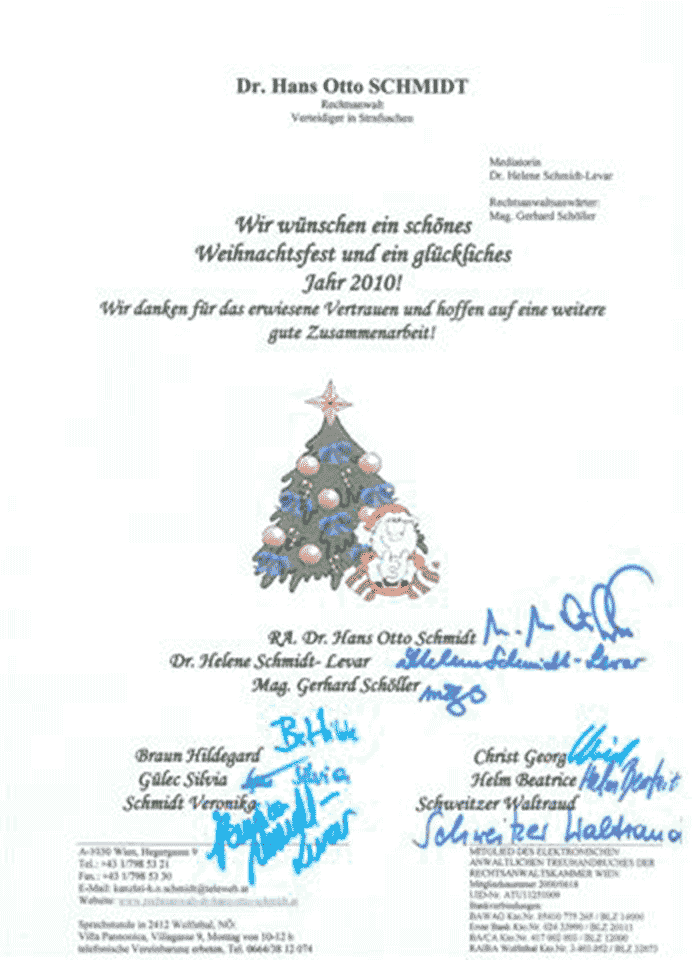 Dr. Hans Otto SCHMIDT
Rechtsanwalt
Verteidiger in Strafsachen
Mediatorin
Dr. Helene Schmidt-Levar
Rechtsanwaltsanwärter:
Mag. Gerhard Schöller
Wir wünschen ein schönes
Weihnachtsfest und ein glückliches
Jahr 2010!
Wir danken für das erwiesene Vertrauen und hoffen auf eine weitere
gute Zusammenarbeit!
RA. Dr. Hans Otto Schmidt
Dr. Helene Schmidt- Levar Helene Schmidt-Levar
Mag. Gerhard Schöller
Braun Hildegard
Gülec Silvia Silvia
Schmidt Veronika
Schmidt-
Levar
Christ Georg
Helm Beatrice Helm Beatrice
Schweitzer Waltraud
Schweitzer Waltraud
A-1030 Wien, Hegergasse 9
Tel.: +43 1/798 53 21
Fax.: +43 1/798 53 30
E-Mail: kanzlei-h.o.schmidt@teleweb.at
Website: www.rechtsanwalt-dr-hans-otto-schmidt.at
Sprechstunde in 2412 Wolfsthal, NÖ:
Villa Pannonica, Villagasse 9, Montag von 10-12 h
telefonische Vereinbarung erbeten, Tel. 0664/38 12 074
MITGLIED DES ELEKTRONISCHEN
ANWALTLICHEN TREUHANDBUCHES DER
RECHTSANWALTSKAMMER WIEN
Mitgliedsnummer 2000/0618
UID-Nr. ATU11251009
Bankverbindungen:
BAWAG Kto.Nr. / BLZ 14000
Erste Bank Kto.Nr. / BLZ 20111
BA/CA Kto.Nr. / BLZ 12000
RAIBA Wolfsthal Kto.Nr. / BLZ